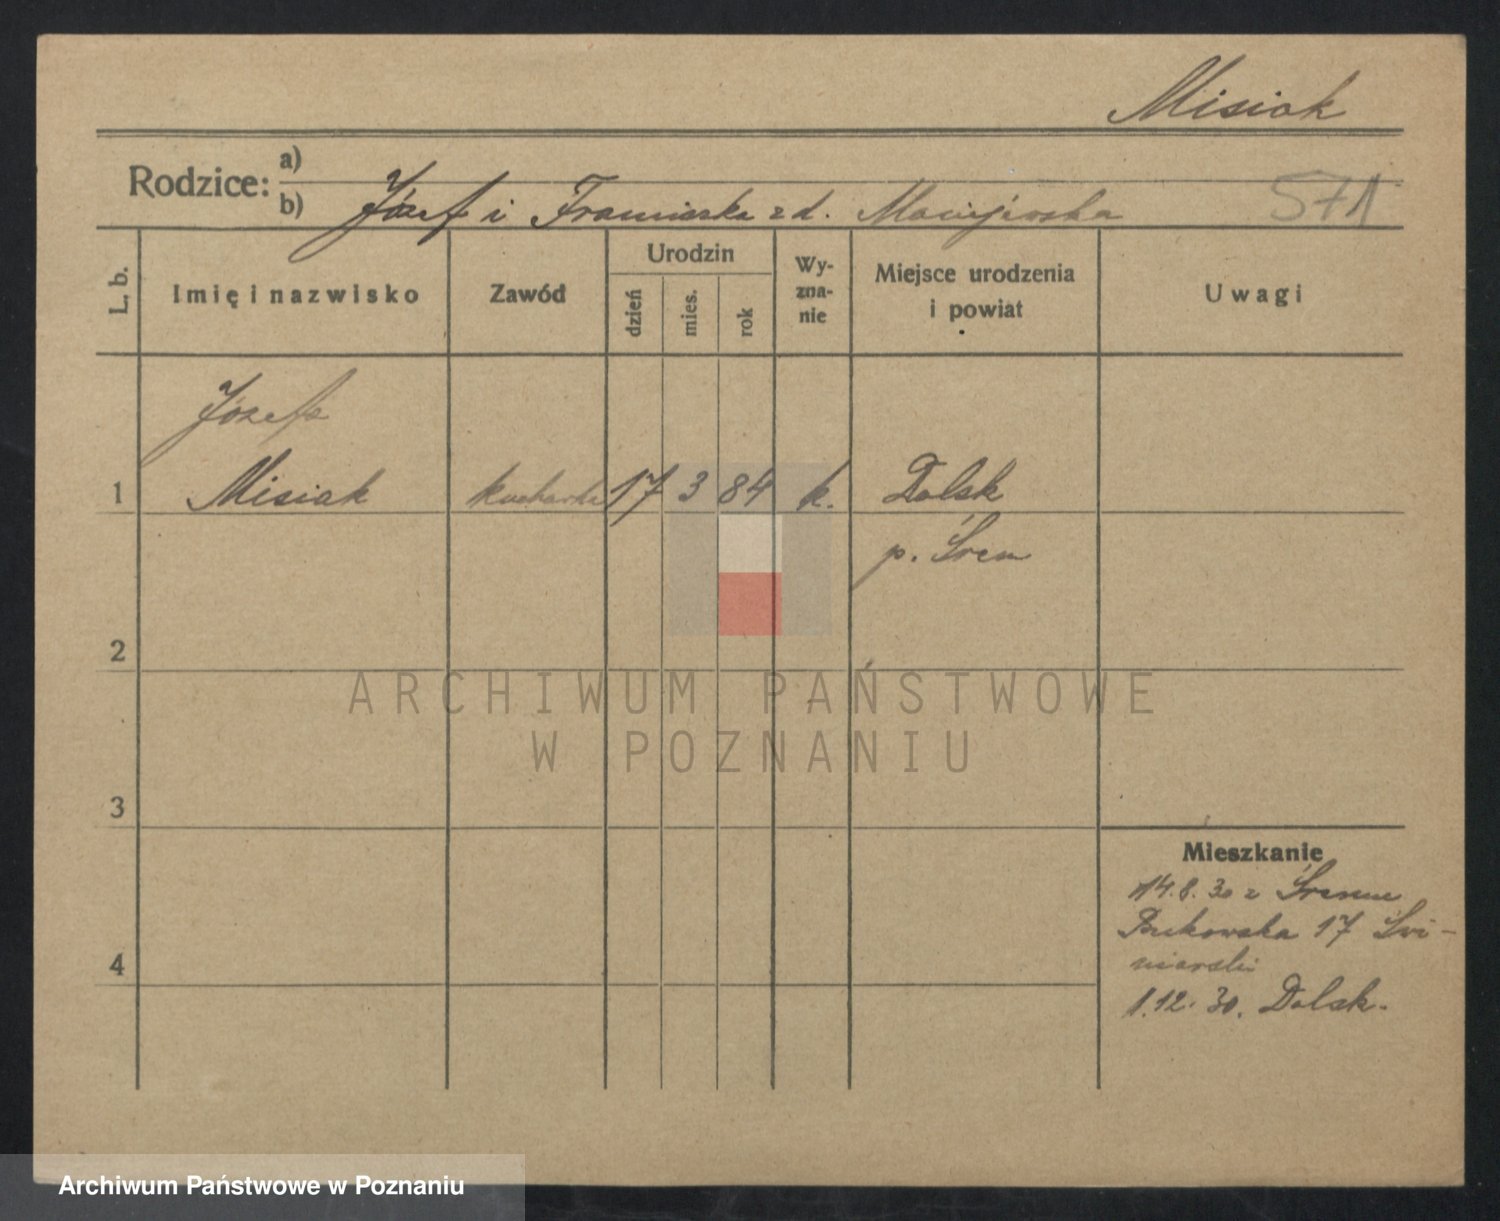 Misiak
Rodzice: a)
b) Józef i Franciszka z d. Maciejewska 571
L. b.
Imię i nazwisko
Zawód
Urodzin
dzień
mies.
rok
Wy-
zna-
nie
Miejsce urodzenia
i powiat
Uwagi
Józefa
1 Misiak kucharka 17 3 84 k. Dolsk
p. Śrem
2
ARCHIWUM PAŃSTWOWE
W POZNANIU
3
Mieszkanie
14.8.30 z Śremu
Bukowska 17 Świ-
niarski
4
1.12.30. Dolsk.
Archiwum Państwowe w Poznaniu